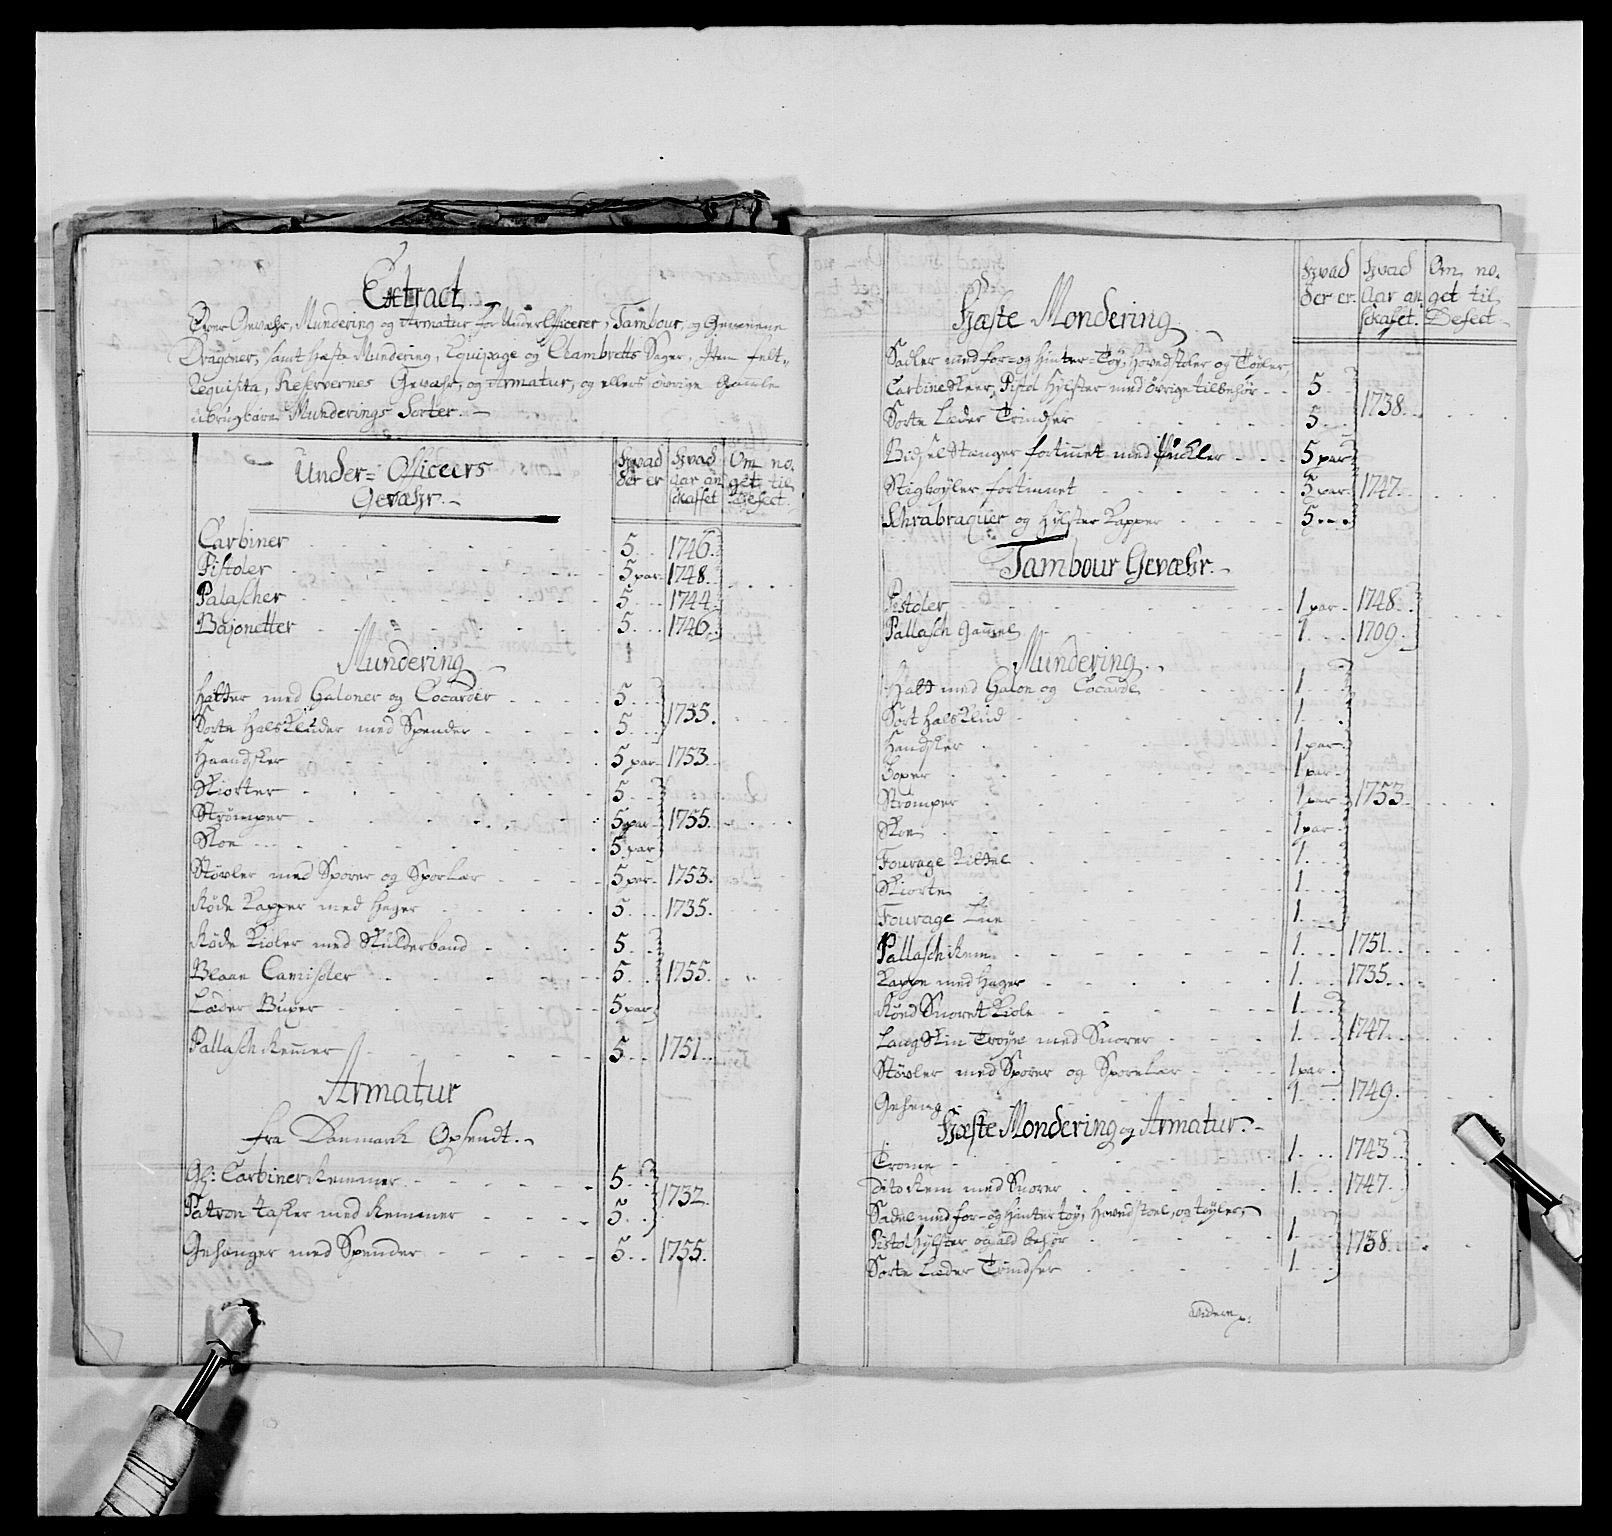 Extract
Over Gewæhr, Mundering og Armatur for UnderOfficerer, Tambour, og Gemeene
Dragoner, samt Hæste Mundering, Equipage og Chambretts Sager, Item felt-
Requisita, Reservernes Gewæhr, og Armatur, og ellers øvrige Gamle
ubrugbare Munderings Sorter.
Under-Officeers Gewæhr.
Hvad der er
Hvad Aar anskaffet
Om noget til Defect.
Carbiner 5 1746.
Pistoler 5 par 1748.
Palascher 5 1744.
Bajonetter 5 1746.
Mundering
Hatter med Galoner og Cocarder 5
Sorte Halsklüder med Spender 5 1755.
Haandsker 5 par 1753.
Skiorter 5
Strømper 5 par 1755.
Skoe 5 par
Støvler med Sporer og Sporlær 5 par 1753.
Røde Kapper med Hager 5 1735.
Røde Kioler med Skulderbaand 5
Blaae Camisoler 5 1755.
Læder Buxer 5 par
Pallasch Remmer 5 1751.
Armatur
fra Danmark Opsendt.
Gh: Carbiner Remmer 5
Patron Tasker med Remmer 5 1732.
Gehænger med Spender 5 1755.
Hvad der er.
Hvad Aar anskaffet.
Om noget til Defect
Hæste Mondering
Sadler med for- og hinter-Tøy, Hovedstoler og Tøiler
Carbine Skoer, Pistol Hylster med øvrige tilbehør 5
Sorte Læder Trindser 5 1738.
Bidsel Stænger fortinnet med Pückler 5 par
Stigbøyler fortinnet 5 par 1747.
Schrabraquer og Hylster Kapper 5
Tambour Gewæhr.
Pistoler 1 par 1748.
Pallasch Gammel 1 1709.
Mundering
Hatt med Galon og Cocarde 1
Sort Halsklud 1
Handsker 1 par
Boxer 1 par
Strømper 1 par 1753.
Skoe 1 par
Fourage Kittel 1
Skiorte 1
Fourage Lue 1
Pallasch Rem 1 1751.
Kappe med Hager 1 1735.
Rød Snoret Kiole 1
Lang Skin Trøye med Snorer 1 1747.
Støvler med Sporer og Sporelær 1 par
Geheng 1 1749.
Hæste Mondering og Armatur.
Tromme 1 1743
Dito Rem med Snorer 1 1747.
Sadel med for- og Hinter tøy, Hovedstoel, og tøyler,
Pistol Hylster og ald behør 1
Sorte Læder Trindser 1 1738.